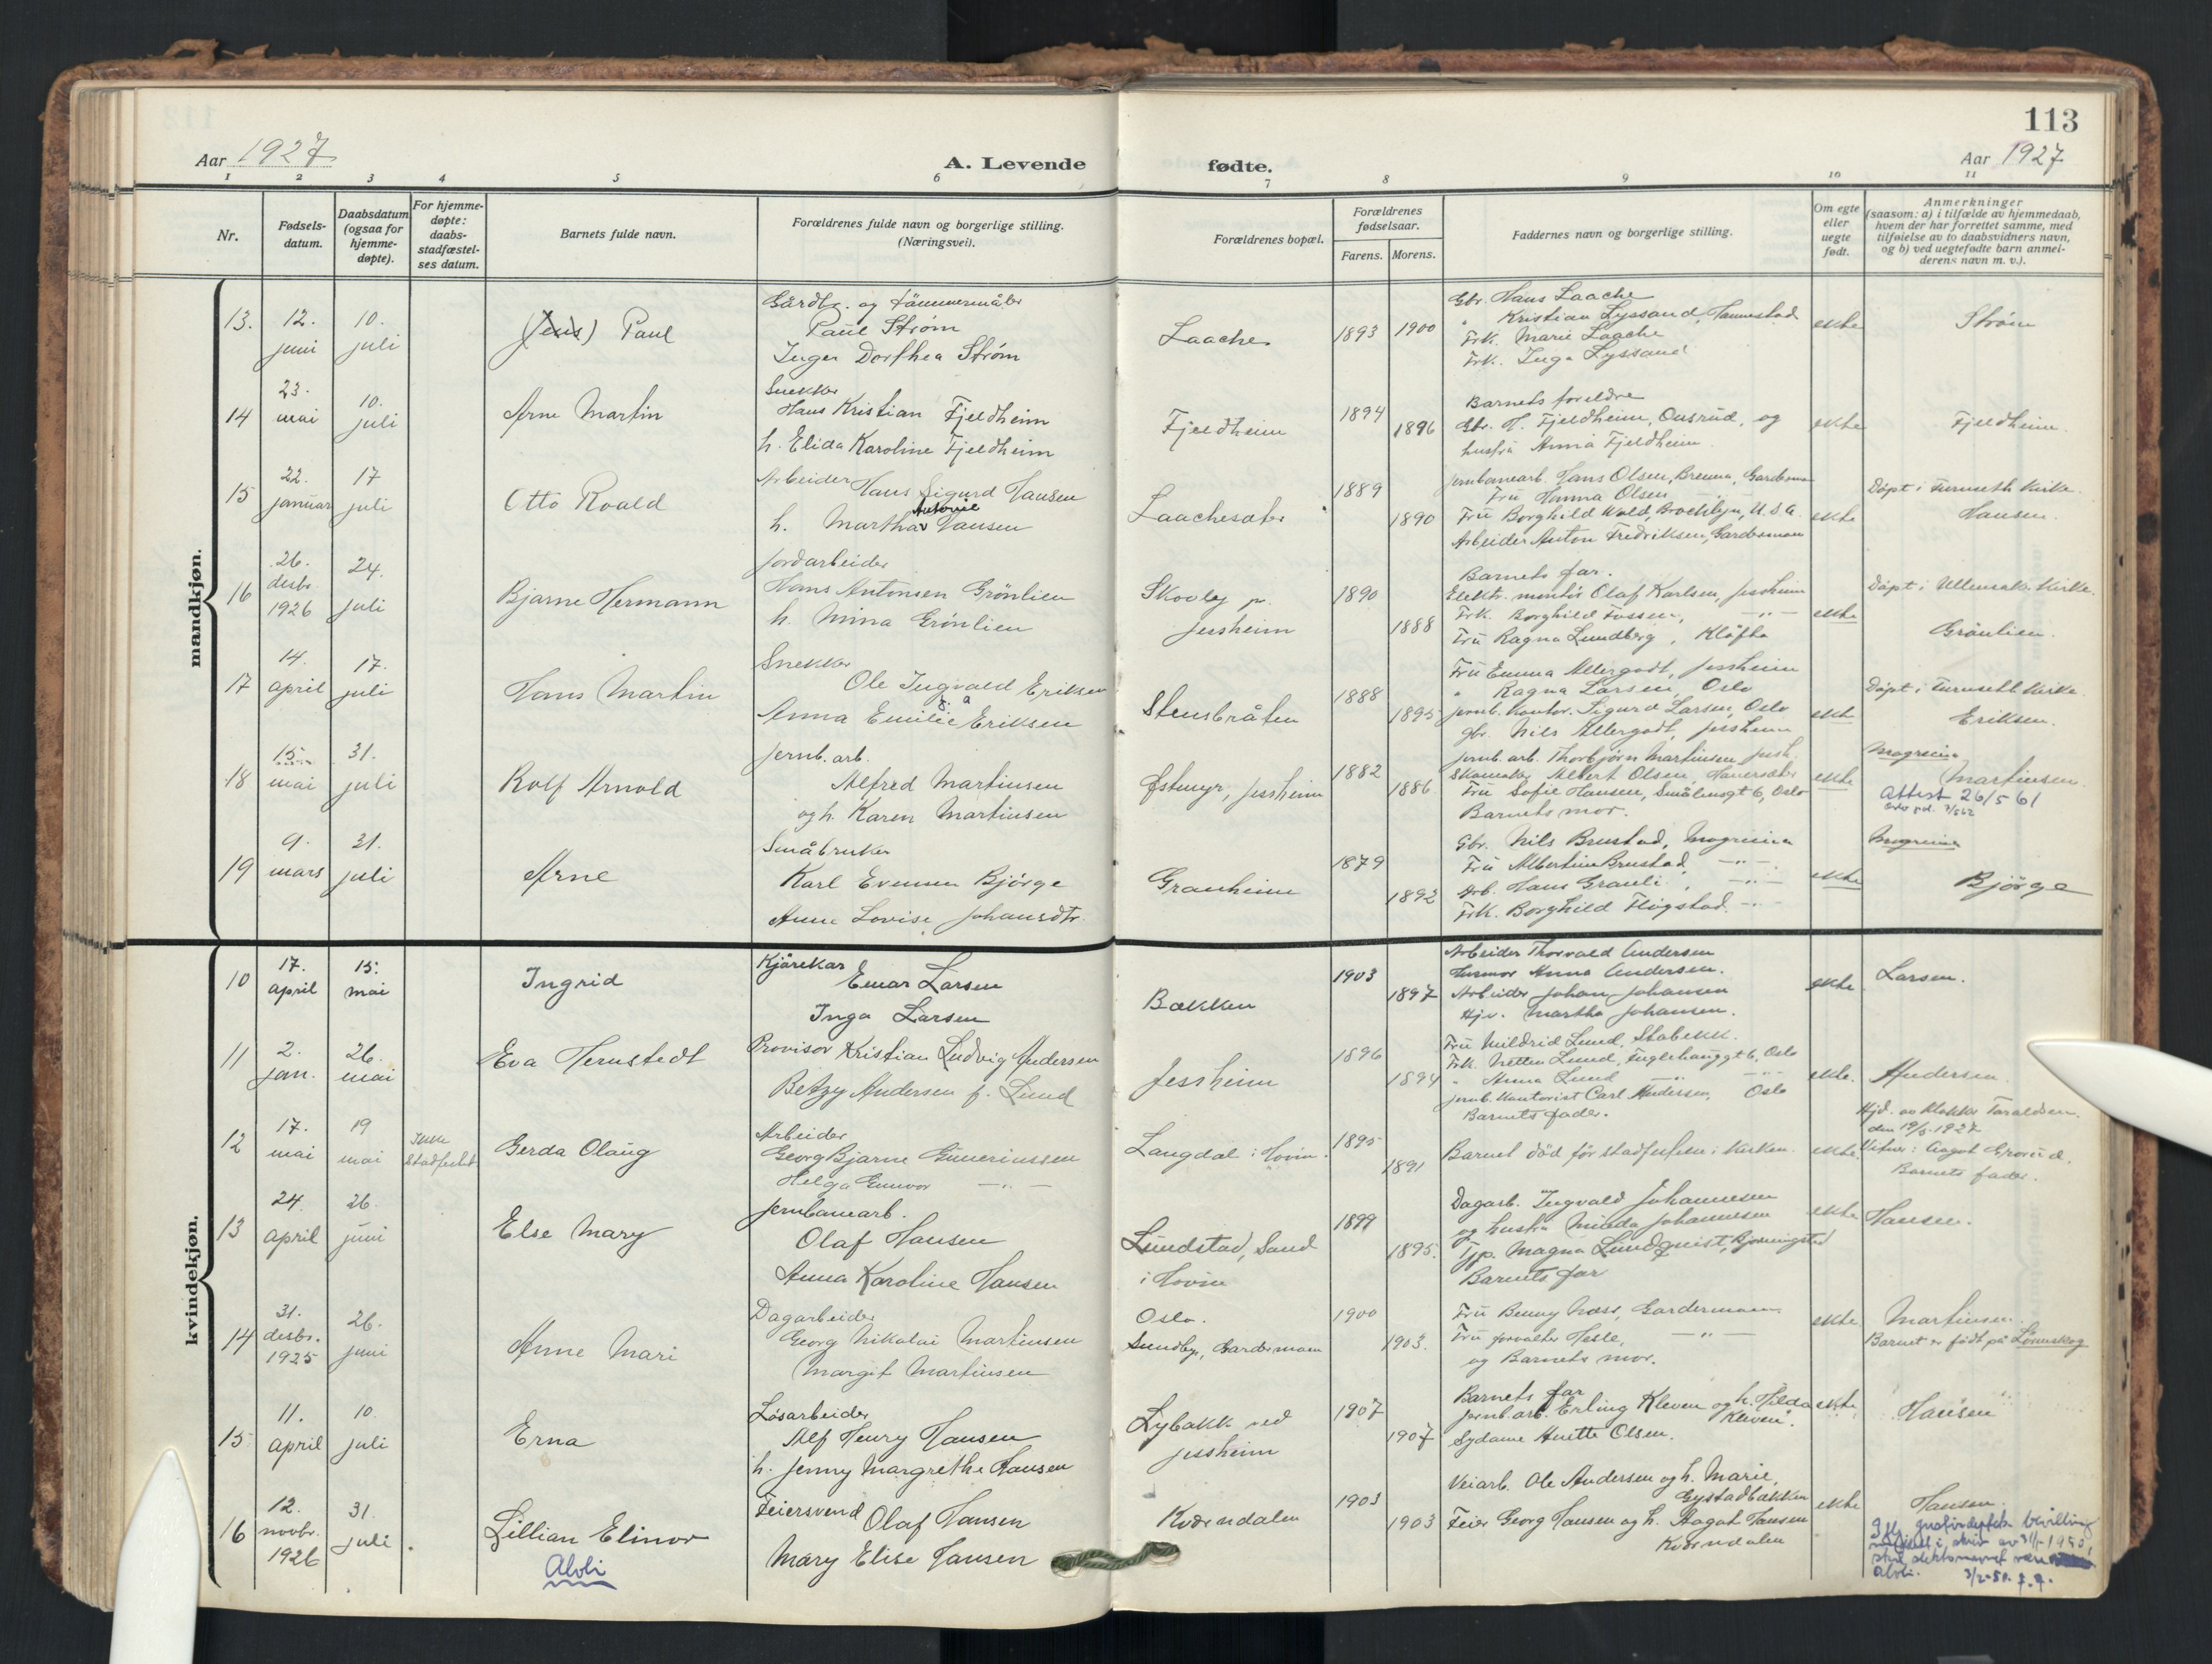 113
Aar 1927
A. Levende
fødte.
Aar 1927
1 2 3 4 5 6 7 8 9 10 11
Nr.
Fødsels-
datum.
Daabsdatum
(ogsaa for
hjemme-
døpte).
For hjemme-
døpte:
daabs-
stadfæstel-
ses datum.
Barnets fulde navn.
Forældrenes fulde navn og borgerlige stilling.
(Næringsvei).
Forældrenes bopæl.
Forældrenes
fødselsaar.
Farens. Morens.
Faddernes navn og borgerlige stilling.
Om egte
eller
uegte
født.
Anmerkninger
(saasom: a) i tilfælde av hjemmedaab,
hvem der har forrettet samme, med
tilføielse av to daabsvidners navn,
og b) ved uegtefødte barn anmel-
derens navn m. v.).
mandkjøn.
13.
12.
juni
10.
juli
(Jens) Paul
Gårdbr. og tömmermåler
Paul Strøm
Inger Dorthea Strøm
Laache
1893 1900
Gbr. Hans Laache
" Kristian Lyssand, Tannestad
Frk. Marie Laache
Frk. Inga Lyssand
ekte
Strøm
14
23.
mai
10.
juli
Arne Martin
Snekker
Hans Kristian Fjeldheim
h. Elida Karoline Fjeldheim
Fjeldheim
1894
1896
Barnets foreldre
Gbr. H. Fjeldheim, Onsrud, og
husfru Anna Fjeldheim
ekte
Fjeldheim.
15
22.
januar
17
juli
Otto Roald
Arbeider
Hans Sigurd Hansen
Antonie
h. Martha Hansen
Laachesæter
1889
1890
Jernbanearb. Hans Olsen, Brenna, Garderm
Fru Hanna Olsen
Fru Borghild Wold, Brooklyn, U.S.A.
Arbeider Anton Fredriksen, Gardermoen
ekte
Döpt i Furuseth kirke.
Hansen.
16
26.
desbr.
1926
24.
juli
Bjarne Hermann
Jordarbeider
Hans Antonsen Grönlien
h. Mina Grönlien
Skovly pr.
Jessheim
1890
1888
Barnets far.
Elektr. montör Olaf Karlsen, Jessheim
Frk. Borghild Fossen, — " —
Fru Ragna Lundberg, Kløfta
ekte
Döpt i Ullensak. kirke.
Grönlien.
17
14.
april
17.
juli
Hans Martin
Snekker
Ole Ingvald Eriksen
Anna Emilie Eriksen
Stensbråten
1888
1895
Fru Emma Allergodt, Jessheim
" Ragna Larsen, Oslo
Jernb. kontor. Sigurd Larsen, Oslo
gbr. Nils Allergodt, Jessheim
ekte
Döpt i Furuseth kirke.
Eriksen.
18
15.
mai
31.
juli
Rolf Arnold
Jernb. arb.
Alfred Martinsen
og h. Karen Martinsen
Østmyr, Jessheim
1882
1886
Jernb. arb. Thorbjørn Martinsen Jessh.
Skomaker Albert Olsen, Hanersæter
Fru Sofie Hansen, Smålensgt 6, Oslo
Barnets mor.
ekte
Mogreina
Martinsen.
Attest 26/5 61
19
9.
mars
31.
juli
Arne
Småbruker
Karl Evensen Bjørge
Anne Lovise Johansdtr.
Granheim
1879
1892
Gbr. Nils Brustad, Mogreina
Fru Albertine Brustad, — " —
Arb. Hans Granli, — " —
Frk. Borghild Flogstad. — " —
ekte
Mogreina
Bjørge
kvindekjøn.
10
17.
april
15.
mai
Ingrid
Kjørekar
Einar Larsen
Inga Larsen
Bakken
1903
1897
Arbeider Thorvald Andersen
Husmor Anna Andersen.
Arbeider Johan Johansen
Hj.v. Martha Johansen.
ekte
Larsen.
11
2.
jan.
26.
mai
Eva Hernstedt
Provisor Kristian Ludvig Andersen
Betzy Andersen f. Lund
Jessheim
1896
1894
Fru Mildrid Lund, Stabekk.
Frk. Netten Lund, Fuglehauggt 6, Oslo
" Anna Lund — " —
Jernb. kontorist Carl Andersen, Oslo
Barnets fader.
ekte.
Andersen.
12
17.
mai
19
mai
Ikke
stadfestet
Gerda Olaug
Arbeider
Georg Bjarne Gunerinssen
Helga Gunvor — " —
Langdal i Hovin.
1895
1891
Barnet död för stadfestelse i kirken.
ekte.
Hjd. av klokker Taraldsen.
den 19/5 1927
Vitner: Aagot Grorud.
Barnets fader.
13
24.
april
26.
juni
Else Mary
Jernbanearb.
Olaf Hansen
Anna Karoline Hansen
Lundstad, Sand
i Hovin
1899
1895.
Dagarb. Ingvald Johannesen
og husfru Minda Johannesen
Tjp. Magna Lundquist,
Barnets far
ekte
Hansen.
14
31.
desbr.
1925
26.
juni
Anne Mari
Dagarbeider
Georg Nikolai Martinsen
Margit Martinsen
Oslo.
Sundby, Gardermoen
1900
1903.
Fru Benny Næss, Gardermoen
Fru forvalter Hesle, — " —
og Barnets mor.
ekte
Martinsen.
Barnet er født på Lørenskog
15
11.
april
10.
juli
Erna
Løsarbeider
Alf Henry Hansen
h. Jenny Margrethe Hansen
Lybakk ved
Jessheim
1907
1907
Barnets far
Jernb. arb. Erling Kleven og h. Hilda
Kleven.
Sydame Anette Olsen.
ekte
Hansen
16
12.
novbr.
1926
31.
juli
Lillian Elinor
Alvli
Feiersvend Olaf Hansen
Mary Elise Hansen
Kværndalen
1903
1903
Veiarb. Ole Andersen og h. Marie,
Gystadbakken
Feier Georg Hansen og h. Aagot Hansen
Kværndalen
ekte
Hansen.
bevilling
skriv av 31/1-1950,
skal slektsnavnet være
Alvli. 3/2-50.